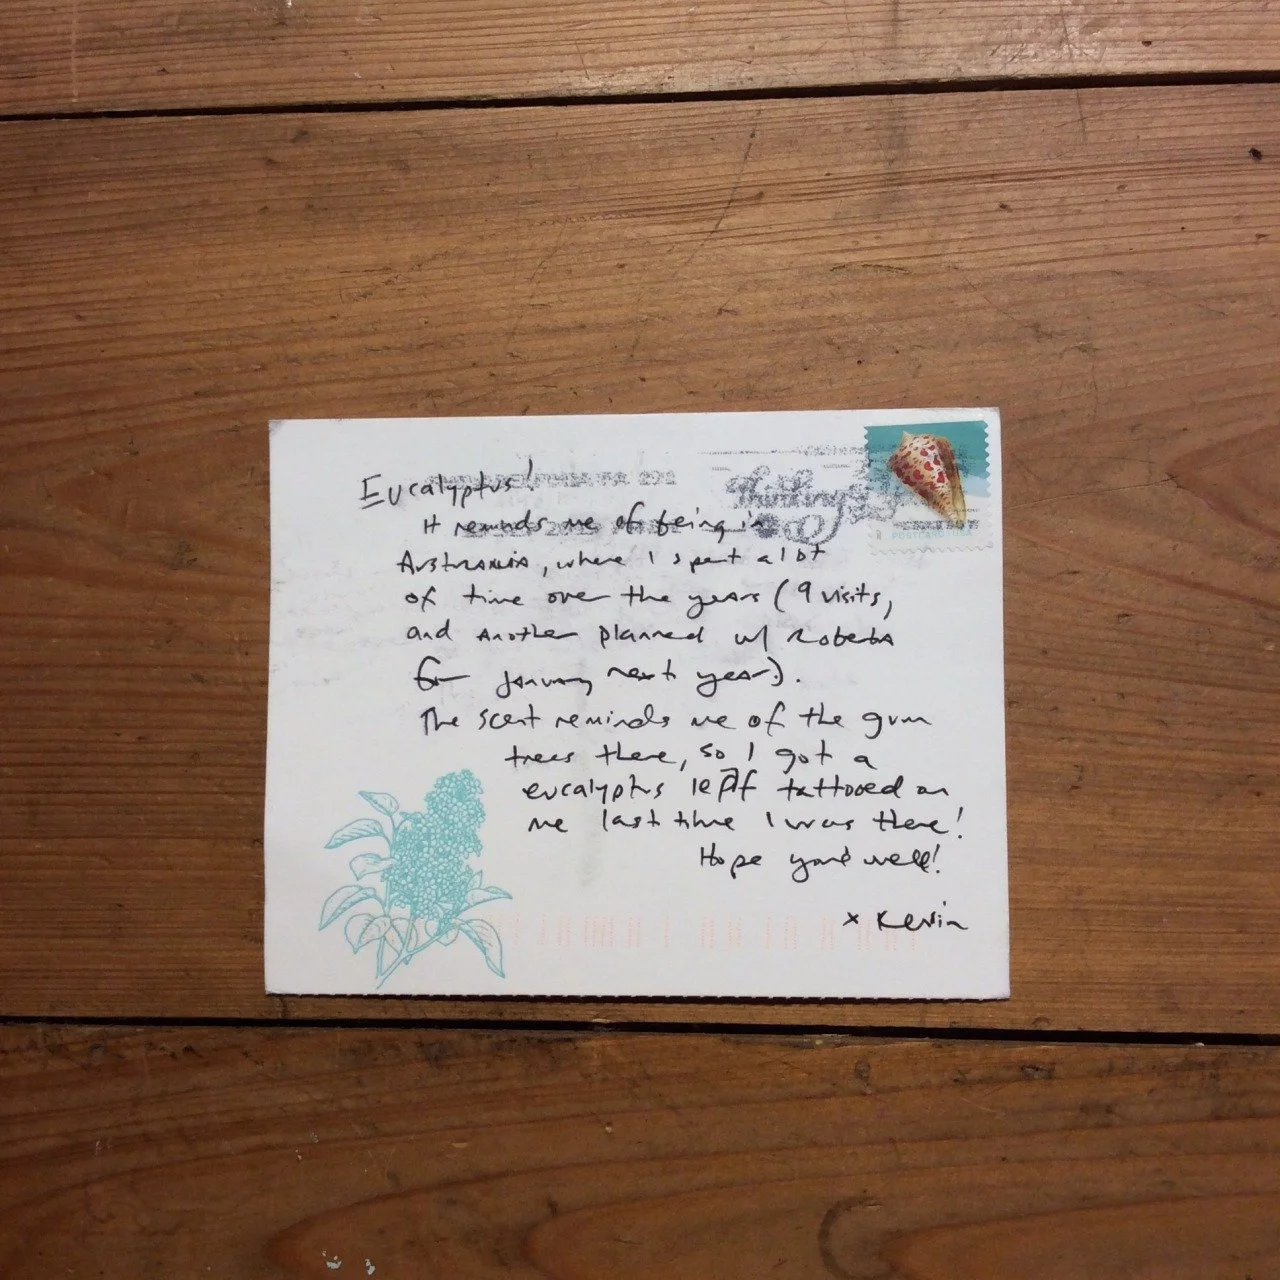 Eucalyptus!
It reminds me of being in
Australia, where I spent a lot
of time over the years (9 visits,
and another planned w/ Roberta
for January next year).
The scent reminds me of the gum
trees there, so I got a
eucalyptus leaf tattooed on
me last time I was there!
Hope you're well!
x Kevin
thinking
POSTCARD USA